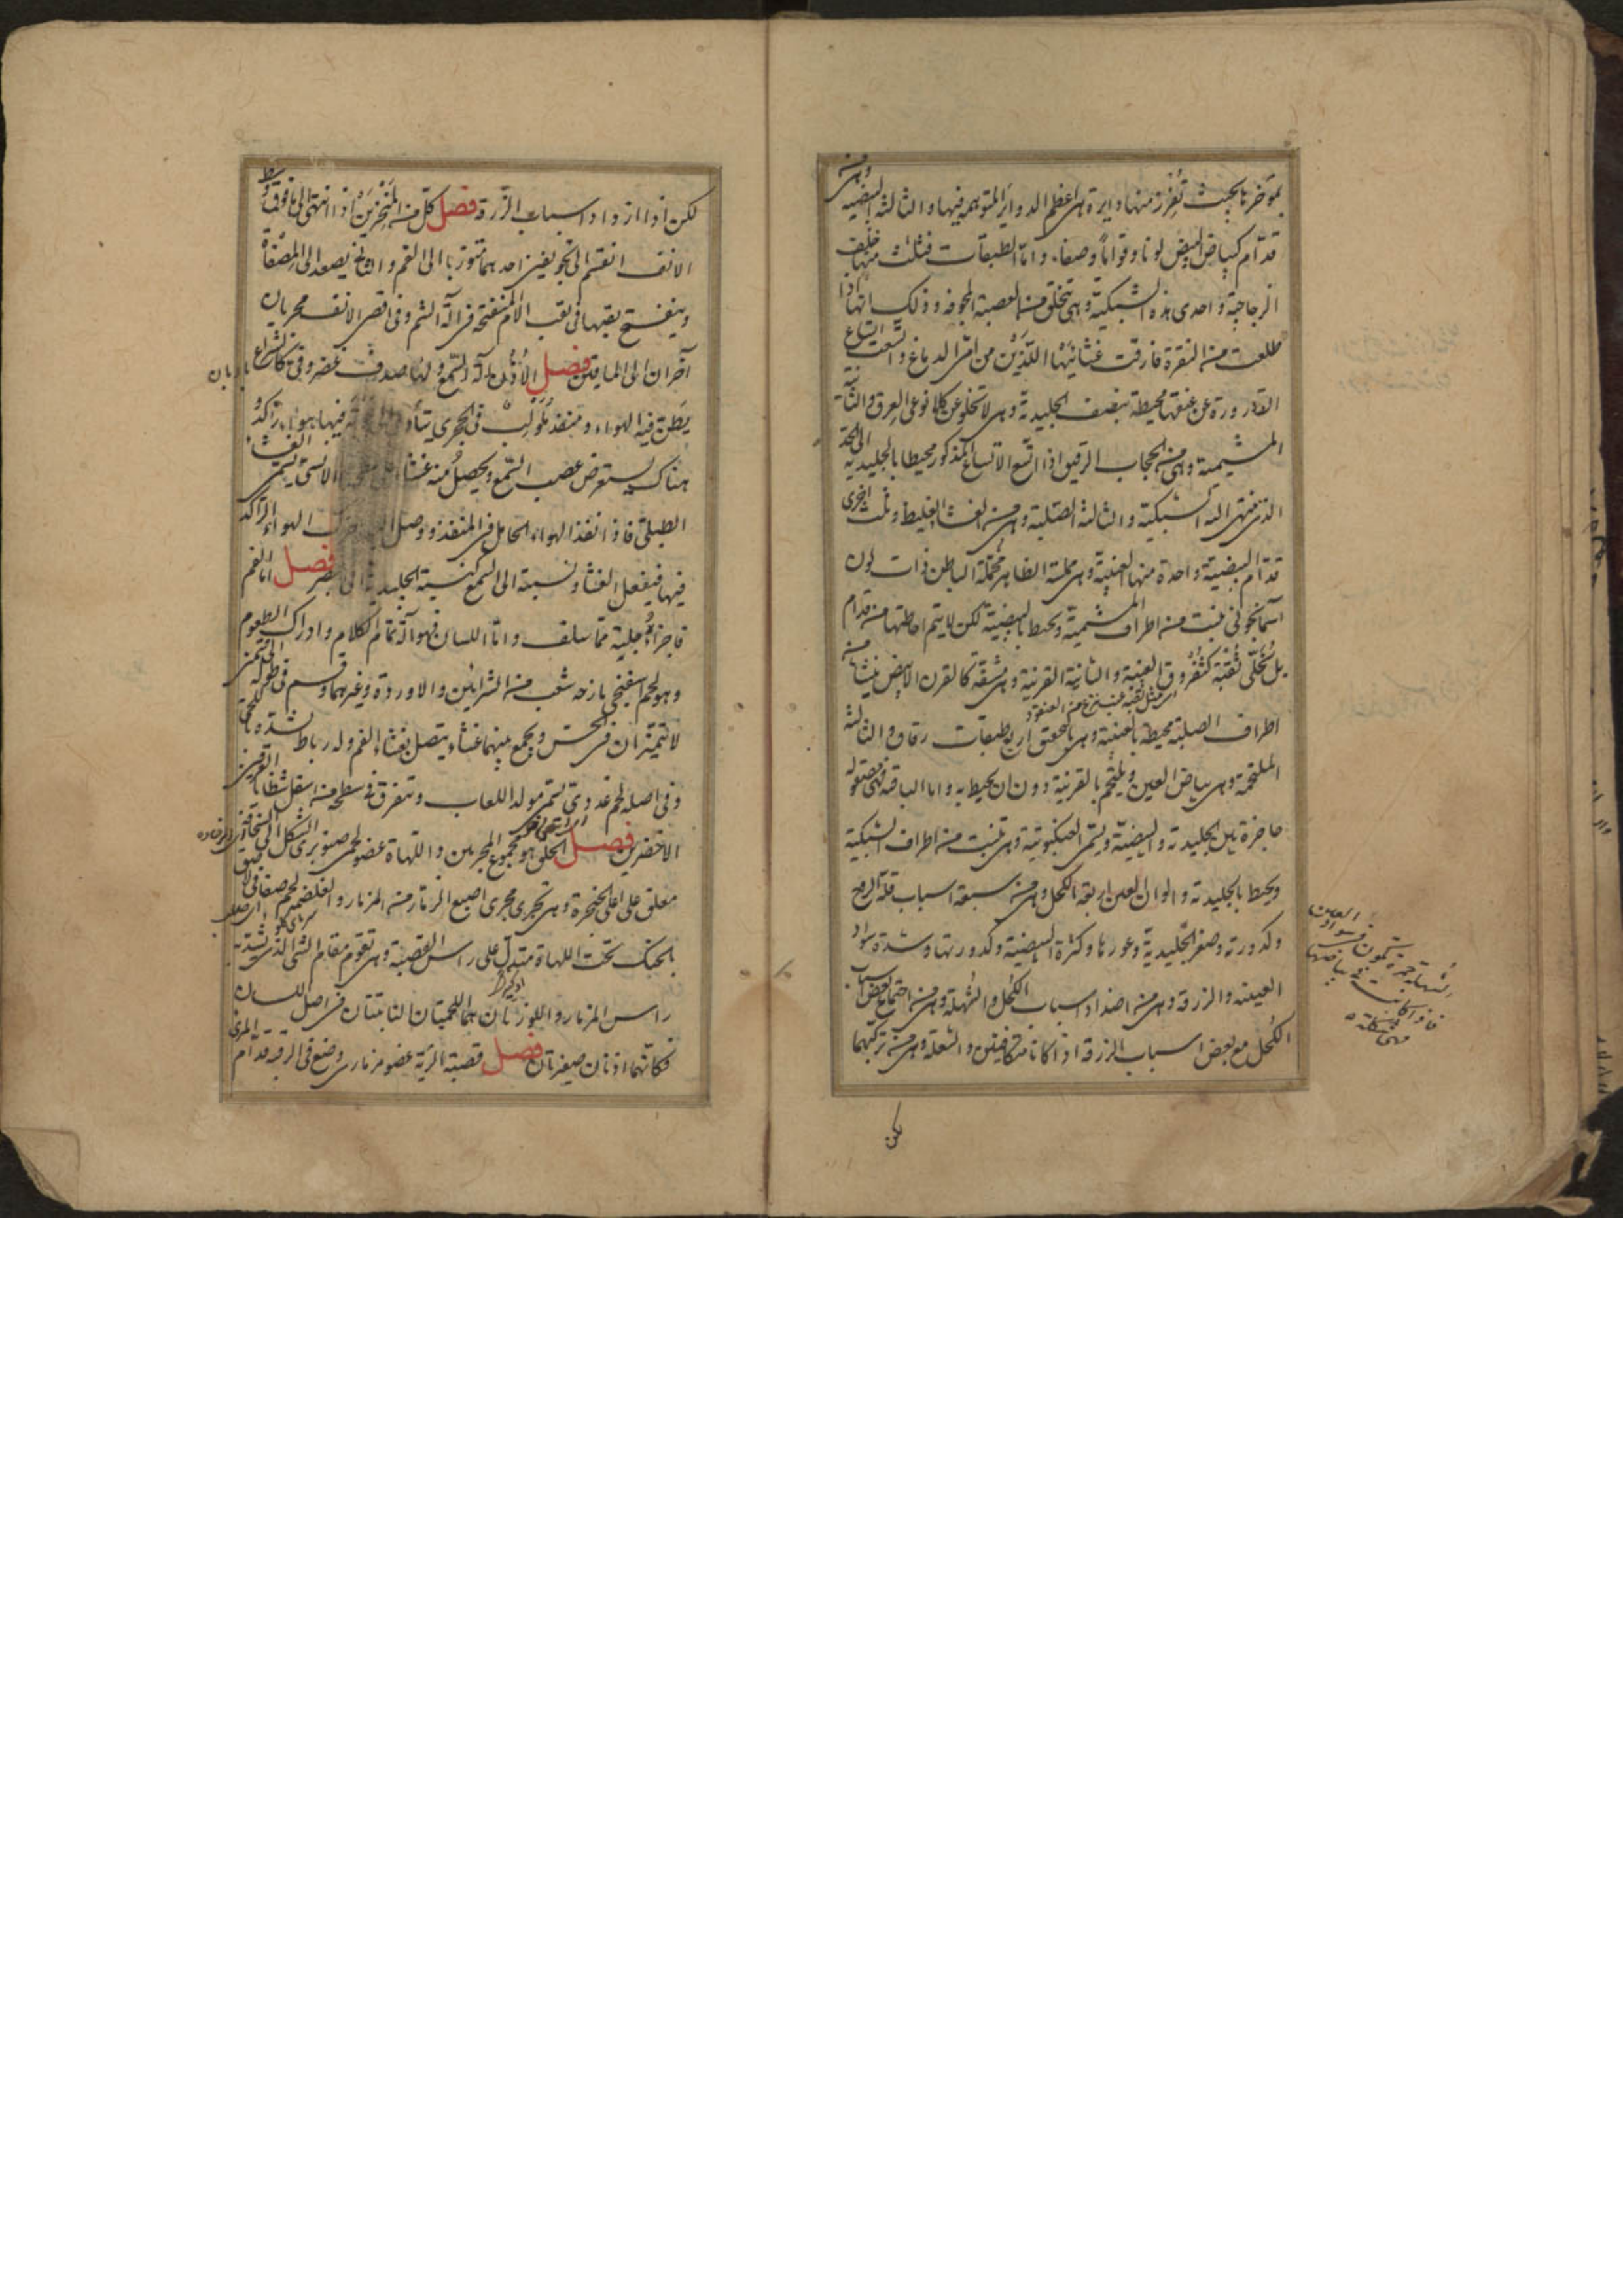 بمؤخرنا بحيث تفرز منها دايرة هى اعظم الدواير المتوهمة فيها والثالثة البيضية وهى من
قدام كبياض البيض لونا وقواما وصفاء واما الطبقات فثلث منها خلف
الزجاجية واحدى هذه الشبكية وهى تتخلق من العصبة المجوفة وذلك انها اذا
طلعت من النقرة فارقت غشائيها اللذين من امى الدماغ واتسعت اتساع
القارورة عن عنقها محيطة بنصف الجليدية وهى لا تخلو عن كلا نوعى العرق والثانية
المشيمية وهى من الحجاب الرقيق اذا اتسع الاتساع المذكور محيطا بالجليدية الى الحد
الذى ينتهى اليه الشبكية والثالثة الصلبية وهى من الغشا الغليظ وثلث اخرى
قدام البيضية واحدة منها العنبية وهى ملسة الظاهر مخملة الباطن ذات لون
آسمانجونى نبتت من اطراف المشيمية وتحيط بالبيضية لكن لا يتم احاطتها من قدام
بل تخلى ثقبة كثفروق العنبة والثانية القرنية وهى مشفة كالقرن الابيض نشأ من
اى مثل ثقبة عنب ينزع من العنقود
اطراف الصلبية محيطة بالعنبية وهى بالتحقيق اربع طبقات رقاق والثالثة
الملتحمة وهى بياض العين ويلتحم بالقرنية دون ان يحيط به واما الباقية فهى مقولة
حاجزة بين الجليدية والبيضية ويسمى العنكبوتية وهى تنبت من اطراف الشبكية
ويحيط بالجليدية والوان العين اربعة الكحل وهى من سبعة اسباب قلة الروح
وكدورته وصغر الجليدية وغورها وكثرة البيضية وكدورتها وشدة سواد
العينية والزرقة وهى من اضداد اسباب الكحل والشهلة وهى من اجتماع بعض اسباب
الكحل مع بعض اسباب الزرقة اذا كانا متكافئين والشعلة وهى من تركبهما
الشهلة حمرة تكون فى سواد العين
فاذا كانت فى بياضها
فهى شكلة
لكن
لكن اذا ازداد اسباب الزرقة فصل كل من المنخرين اذا انتهى الى ما فوق
الانف انقسم الى تجويفين احدهما يتورب الى الفم والثانى يصعد الى المصفاة
وينفتح بثقبها فى ثقب الام المنفتحة فى آلة الشم وفى اقصى الانف مجريان
آخران الى الماقين فصل الاذن آلة السمع ولها صدف غضروفى كالشراع
يطن فيه الهواء ومنفذ ملولب فى الحجرى يتأدى الى فيها هواء راكد
هناك يستعرض عصب السمع ويحصل منه غشاء الانسى يسمى الغشاء
الطبلى فاذا نفذ الهواء الحامل فى المنفذ ووصل حرك الهواء الراكد
فيها فينفعل الغشاء ونسبته الى السمع كنسبة الجليدية الى البصر فصل اما الفم
فاجزاؤه جلية مما سلف واما اللسان فهو آلة تمام الكلام وادراك الطعوم
وهو لحم اسفنجى مازجه شعب من الشرايين والاوردة وغيرهما وقسم فى طوله الى قسمين
لا يتميزان فى الحس ويجمع بينهما غشاء يتصل بغشاء الفم وله رباط
وفى اصله لحم غددى يسمى مولد اللعاب وتتفرق فى سطحه من اسفل شظايا العرقين
الاخضرين فصل الحلق هو مجموع المجريين واللهاة عضو لحمى صنوبرى الشكل
معلق على اعلى الحنجرة وهى تجرى مجرى اصبع الزمار من المزمار والغلصمة لحم صفاقى لاصق
بالحنك تحت اللهاة متدل على راس القصبة وهى تقوم مقام الشئ الذى يشد به
راس المزمار واللوزتان هما اللحميتان النابتتان فى اصل اللسان
فكانهما اذنان صغيرتان فصل قصبة الرية عضو مزمارى وضع فى الرقبة قدام المرى